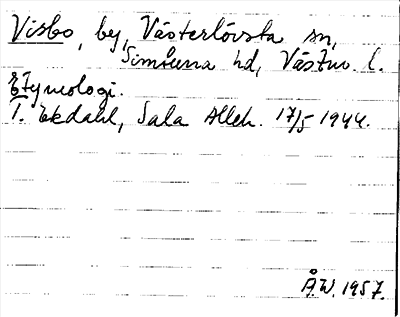 Visbo, by, Västerlövsta sn,
Simtuna hd, Västm. l.
Etymologi.
T. Ekdahl, Sala Alleh. 17/5 1944.
Å.W. 1957.